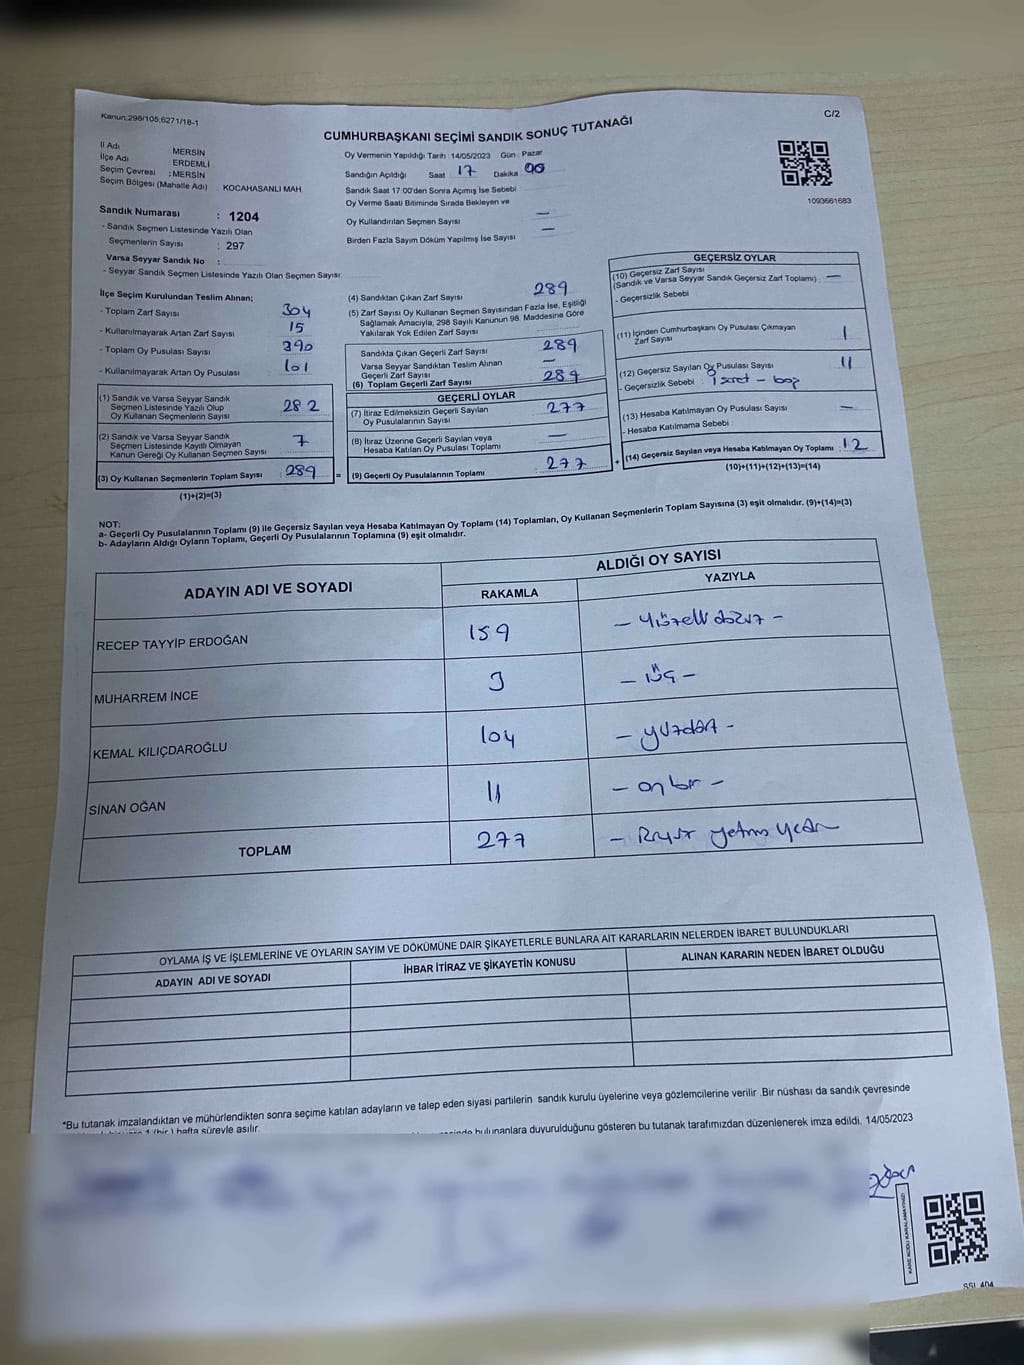 Kanun:298/105,6271/18-1
C/2
CUMHURBAŞKANI SEÇİMİ SANDIK SONUÇ TUTANAĞI
İl Adı MERSİN
İlçe Adı ERDEMLİ
Seçim Çevresi :MERSİN
Seçim Bölgesi (Mahalle Adı) : KOCAHASANLI MAH.
Oy Vermenin Yapıldığı Tarih :14/05/2023 Gün : Pazar
Sandığın Açıldığı Saat 17 Dakika 00
Sandık Saat 17:00'den Sonra Açımış İse Sebebi
Oy Verme Saati Bitiminde Sırada Bekleyen ve
Oy Kullandırılan Seçmen Sayısı —
Birden Fazla Sayım Döküm Yapılmış İse Sayısı —
1093661683
Sandık Numarası : 1204
- Sandık Seçmen Listesinde Yazılı Olan
Seçmenlerin Sayısı : 297
Varsa Seyyar Sandık No :
- Seyyar Sandık Seçmen Listesinde Yazılı Olan Seçmen Sayısı:
İlçe Seçim Kurulundan Teslim Alınan;
- Toplam Zarf Sayısı 304
- Kullanılmayarak Artan Zarf Sayısı 15
- Toplam Oy Pusulası Sayısı 390
- Kullanılmayarak Artan Oy Pusulası 101
(1) Sandık ve Varsa Seyyar Sandık
Seçmen Listesinde Yazılı Olup
Oy Kullanan Seçmenlerin Sayısı 282
(2) Sandık ve Varsa Seyyar Sandık
Seçmen Listesinde Kayıtlı Olmayan
Kanun Gereği Oy Kullanan Seçmen Sayısı 7
(3) Oy Kullanan Seçmenlerin Toplam Sayısı 289
(1)+(2)=(3)
(4) Sandıktan Çıkan Zarf Sayısı 289
(5) Zarf Sayısı Oy Kullanan Seçmen Sayısından Fazla İse, Eşitliği
Sağlamak Amacıyla, 298 Sayılı Kanunun 98. Maddesine Göre
Yakılarak Yok Edilen Zarf Sayısı
Sandıkta Çıkan Geçerli Zarf Sayısı 289
Varsa Seyyar Sandıktan Teslim Alınan
Geçerli Zarf Sayısı —
(6) Toplam Geçerli Zarf Sayısı 289
GEÇERLİ OYLAR
(7) İtiraz Edilmeksizin Geçerli Sayılan
Oy Pusulalarının Sayısı 277
(8) İtiraz Üzerine Geçerli Sayılan veya
Hesaba Katılan Oy Pusulası Toplamı —
= (9) Geçerli Oy Pusulalarının Toplamı 277
GEÇERSİZ OYLAR
(10) Geçersiz Zarf Sayısı
(Sandık ve Varsa Seyyar Sandık Geçersiz Zarf Toplamı) : —
- Geçersizlik Sebebi
(11) İçinden Cumhurbaşkanı Oy Pusulası Çıkmayan
Zarf Sayısı 1
(12) Geçersiz Sayılan Oy Pusulası Sayısı 11
- Geçersizlik Sebebi :
(13) Hesaba Katılmayan Oy Pusulası Sayısı —
- Hesaba Katılmama Sebebi :
+ (14) Geçersiz Sayılan veya Hesaba Katılmayan Oy Toplamı : 12
(10)+(11)+(12)+(13)=(14)
NOT:
a- Geçerli Oy Pusulalarının Toplamı (9) ile Geçersiz Sayılan veya Hesaba Katılmayan Oy Toplamı (14) Toplamları, Oy Kullanan Seçmenlerin Toplam Sayısına (3) eşit olmalıdır. (9)+(14)=(3)
b- Adayların Aldığı Oyların Toplamı, Geçerli Oy Pusulalarının Toplamına (9) eşit olmalıdır.
ADAYIN ADI VE SOYADI ALDIĞI OY SAYISI
RAKAMLA YAZIYLA
RECEP TAYYİP ERDOĞAN 159 – Yüzelli dokuz –
MUHARREM İNCE 3 – üç –
KEMAL KILIÇDAROĞLU 104 – yüzdört –
SİNAN OĞAN 11 – on bir –
TOPLAM 277 – İkiyüz yetmiş yedi
OYLAMA İŞ VE İŞLEMLERİNE VE OYLARIN SAYIM VE DÖKÜMÜNE DAİR ŞİKAYETLERLE BUNLARA AİT KARARLARIN NELERDEN İBARET BULUNDUKLARI
ADAYIN ADI VE SOYADI İHBAR İTİRAZ VE ŞİKAYETİN KONUSU ALINAN KARARIN NEDEN İBARET OLDUĞU
*Bu tutanak imzalandıktan ve mühürlendikten sonra seçime katılan adayların ve talep eden siyasi partilerin sandık kurulu üyelerine veya gözlemcilerine verilir .Bir nüshası da sandık çevresinde
1 (bir ) hafta süreyle asılır.
bulunanlara duyurulduğunu gösteren bu tutanak tarafımızdan düzenlenerek imza edildi. 14/05/2023
KARE KODU KARALAMAYINIZ!